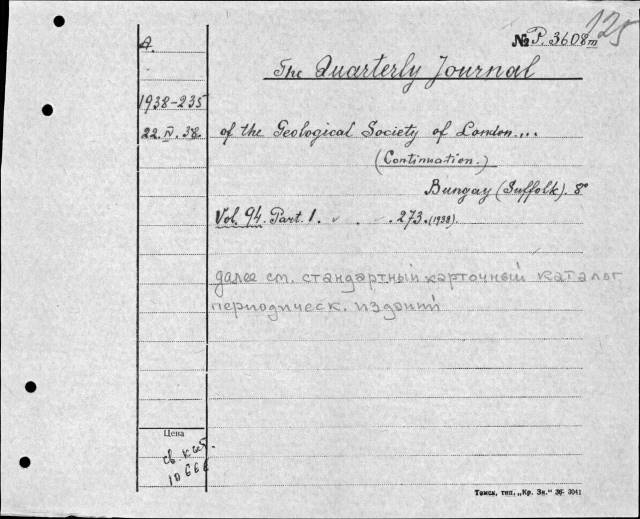 125
№ P. 3608m
A.
The Quarterly Journal
1938-235
22. IV. 38.
of the Geological Society of London...
(Continuation.)
Bungay (Suffolk). 8°
Vol. 94. Part. 1. 273. (1938).
далее см. стандартный карточный каталог
периодическ. изданий
Цена
св. кат.
10666
Томск, тип. „Кр. Зн.“ 36- 3041